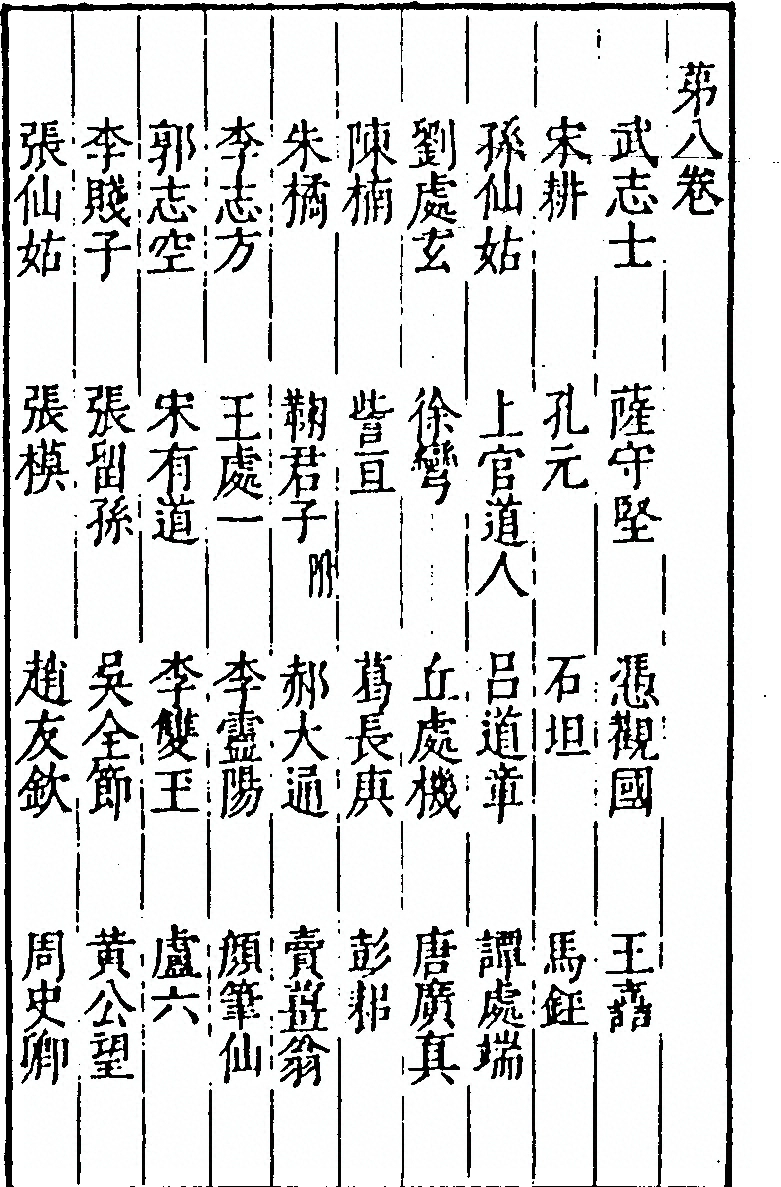 第八卷
武志士 薩守堅 馮觀國 王嚞
宋耕 孔元 石坦 馬鈺
孫仙姑 上官道人 呂道章 譚處端
劉處玄 徐彎 丘處機 唐廣真
陳楠 訾亘 葛長庚 彭耜
朱橘 鞠君子附 郝大通 賣薑翁
李志方 王處一 李靈陽 顏筆仙
郭志空 宋有道 李雙玉 盧六
李賤子 張留孫 吳全節 黃公望
張仙姑 張模 趙友欽 周史卿